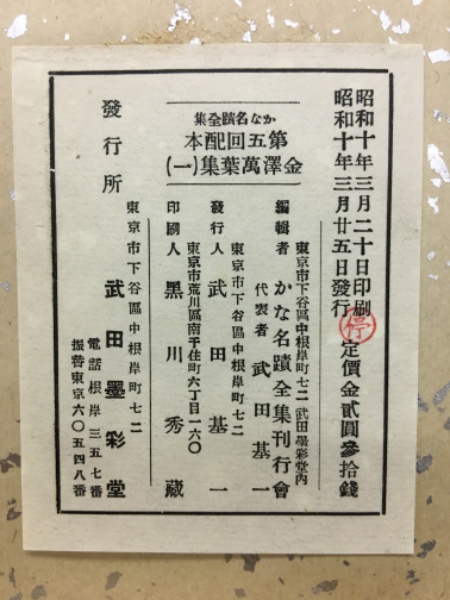 昭和十年三月二十日印刷
昭和十年三月廿五日發行
停
定價金貳圓參拾錢
かな名蹟全集
第五回配本
金澤萬葉集(一)
東京市下谷區中根岸町七二 武田墨彩堂内
編輯者 かな名蹟全集刊行會
代表者 武田基一
東京市下谷區中根岸町七二
發行人 武田基一
東京市荒川區南千住町六丁目一六〇
印刷人 黑川秀藏
發行所
東京市下谷區中根岸町七二
武田墨彩堂
電話根岸三五七番
振替東京六〇五四八番